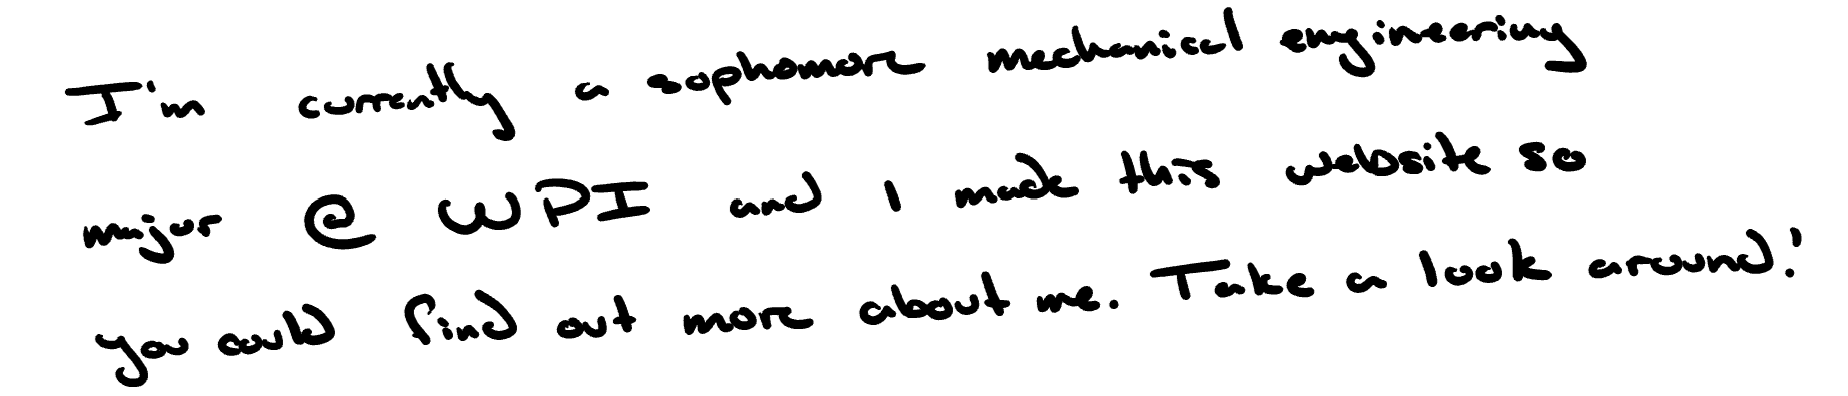 I'm currently a sophomore mechanical engineering
major @ WPI and I made this website so
you could find out more about me. Take a look around!